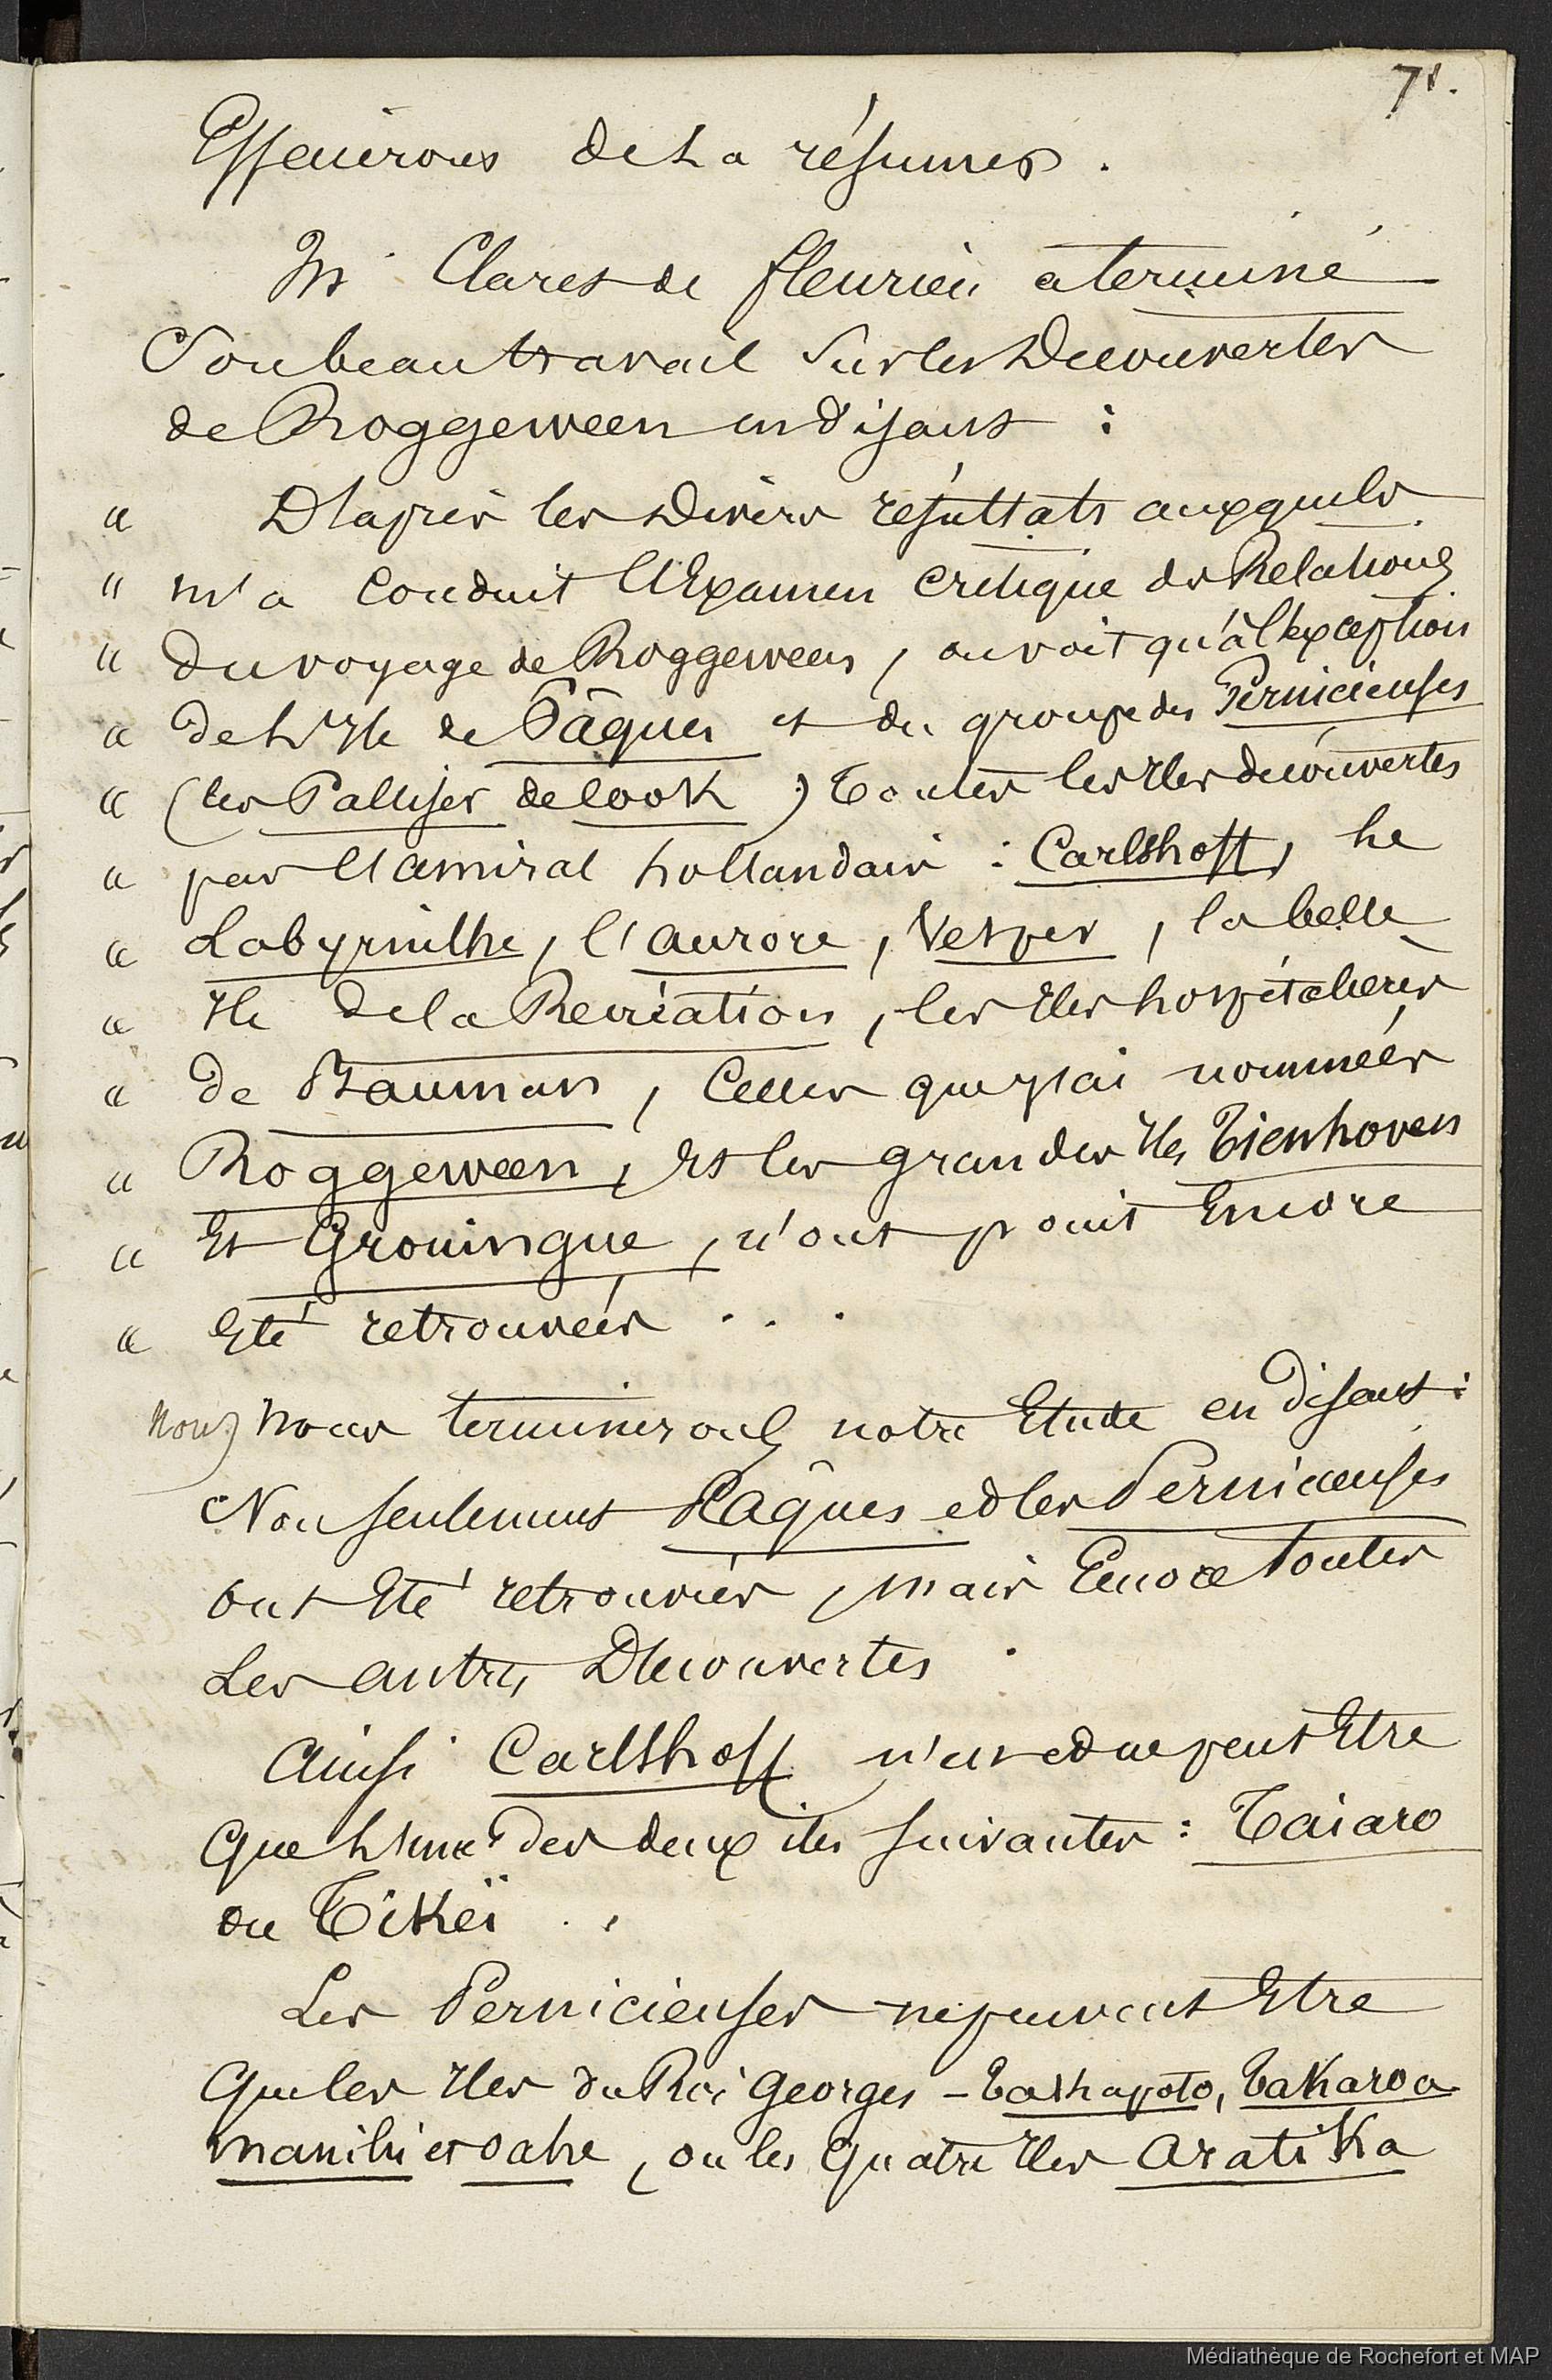 71.
Essaierons de la résumer.
Mr Claret de fleurieu a terminé
Son beau travail Sur les Découvertes
de Roggeween en disant :
" D'après les Divers résultats auxquels
" m'a Conduit l'Examen Critique des Relations
" Du voyage de Roggeween, on voit qu'à l'exception
" De l'Ile de Pâques et du groupe des Pernicieuses
" (les Palliser de Cook) Toutes les Iles découvertes
" par l'amiral hollandais : Carlshoff, he
" Labyrinthe, l'aurore, Vesper, la belle
" Ile de la Recréation, les Iles hospitalières
" De Bauman, Celles que j'ai nommées
" Roggeween, Et les grandes Iles Tienhoven
" Et Groningue, n'ont point Encore
" Eté retrouvées . . .
Nous) Nous terminerons notre Etude en disant :
Non seulement Pâques et les Pernicieuses
ont Eté retrouvées, mais Encore toutes
Les autres Découvertes.
Ainsi Carlshoff n'est et ne peut Etre
Que l'une des deux iles suivantes : Taiaro
ou Tikeï . .
Les Pernicieuses ne peuvent Etre
Que les Iles du Roi Georges - Takapoto, Takaroa
manihi et oahe, ou les Quatre Iles Aratika
Médiathèque de Rochefort et MAP